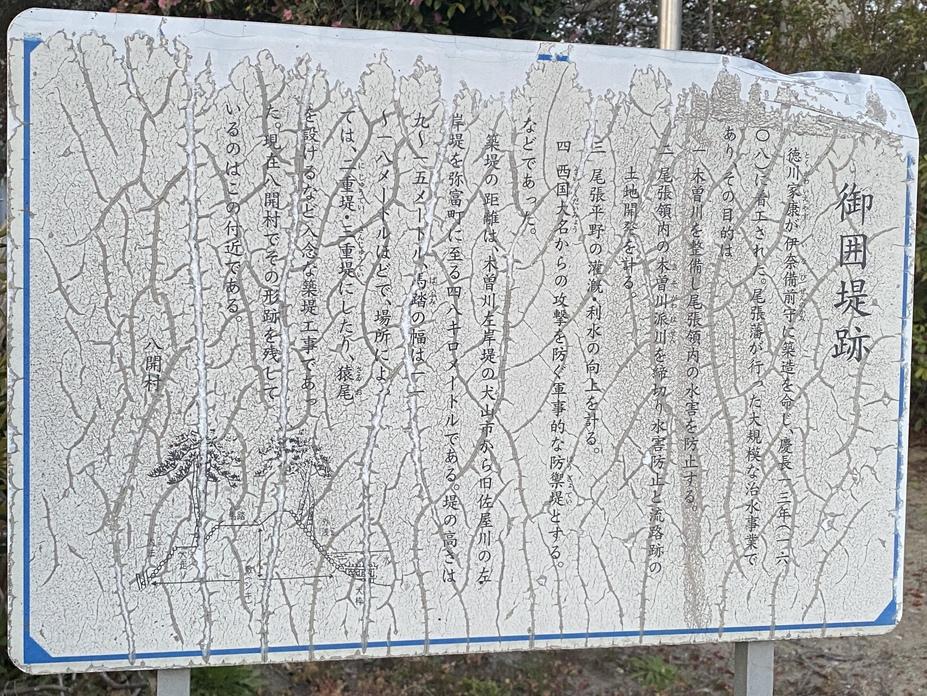 御囲堤跡
徳川家康が伊奈備前守に築造を命じ、慶長一三年（一六
〇八）に着工された。尾張藩が行った大規模な治水事業で
あり、その目的は
一 木曽川を整備し尾張領内の水害を防止する。
二 尾張領内の木曽川派川を締切り水害防止と流路跡の
土地開発を計る。
三 尾張平野の灌漑・利水の向上を計る。
四 西国大名からの攻撃を防ぐ軍事的な防禦堤とする。
などであった。
築堤の距離は、木曽川左岸堤の犬山市から旧佐屋川の左
岸堤を弥富町に至る四八キロメートルである。堤の高さは
九～一五メートル、馬踏の幅は一一
～一八メートルほどで、場所によっ
ては、二重堤・三重堤にしたり、猿尾
を設けるなど入念な築堤工事であっ
た。現在八開村でその形跡を残して
いるのはこの付近である
八開村